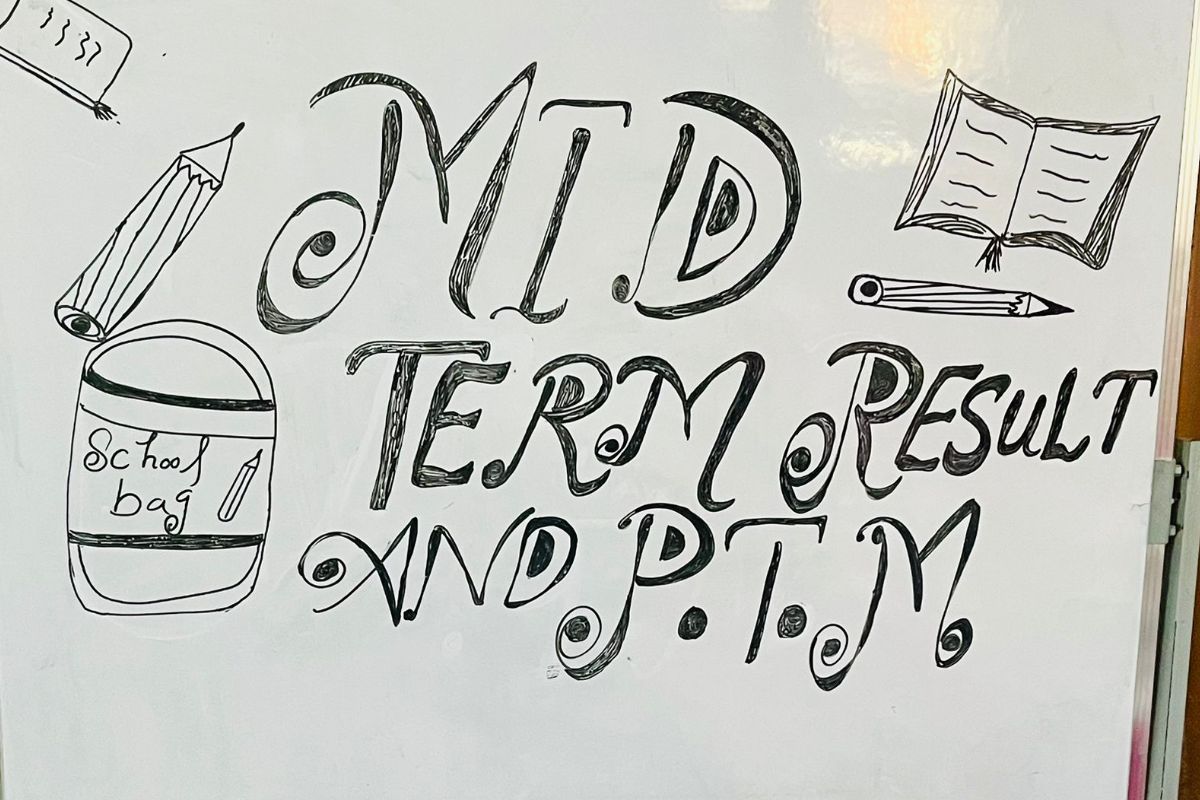 MID
TERM RESULT
AND P.T.M
School
bag